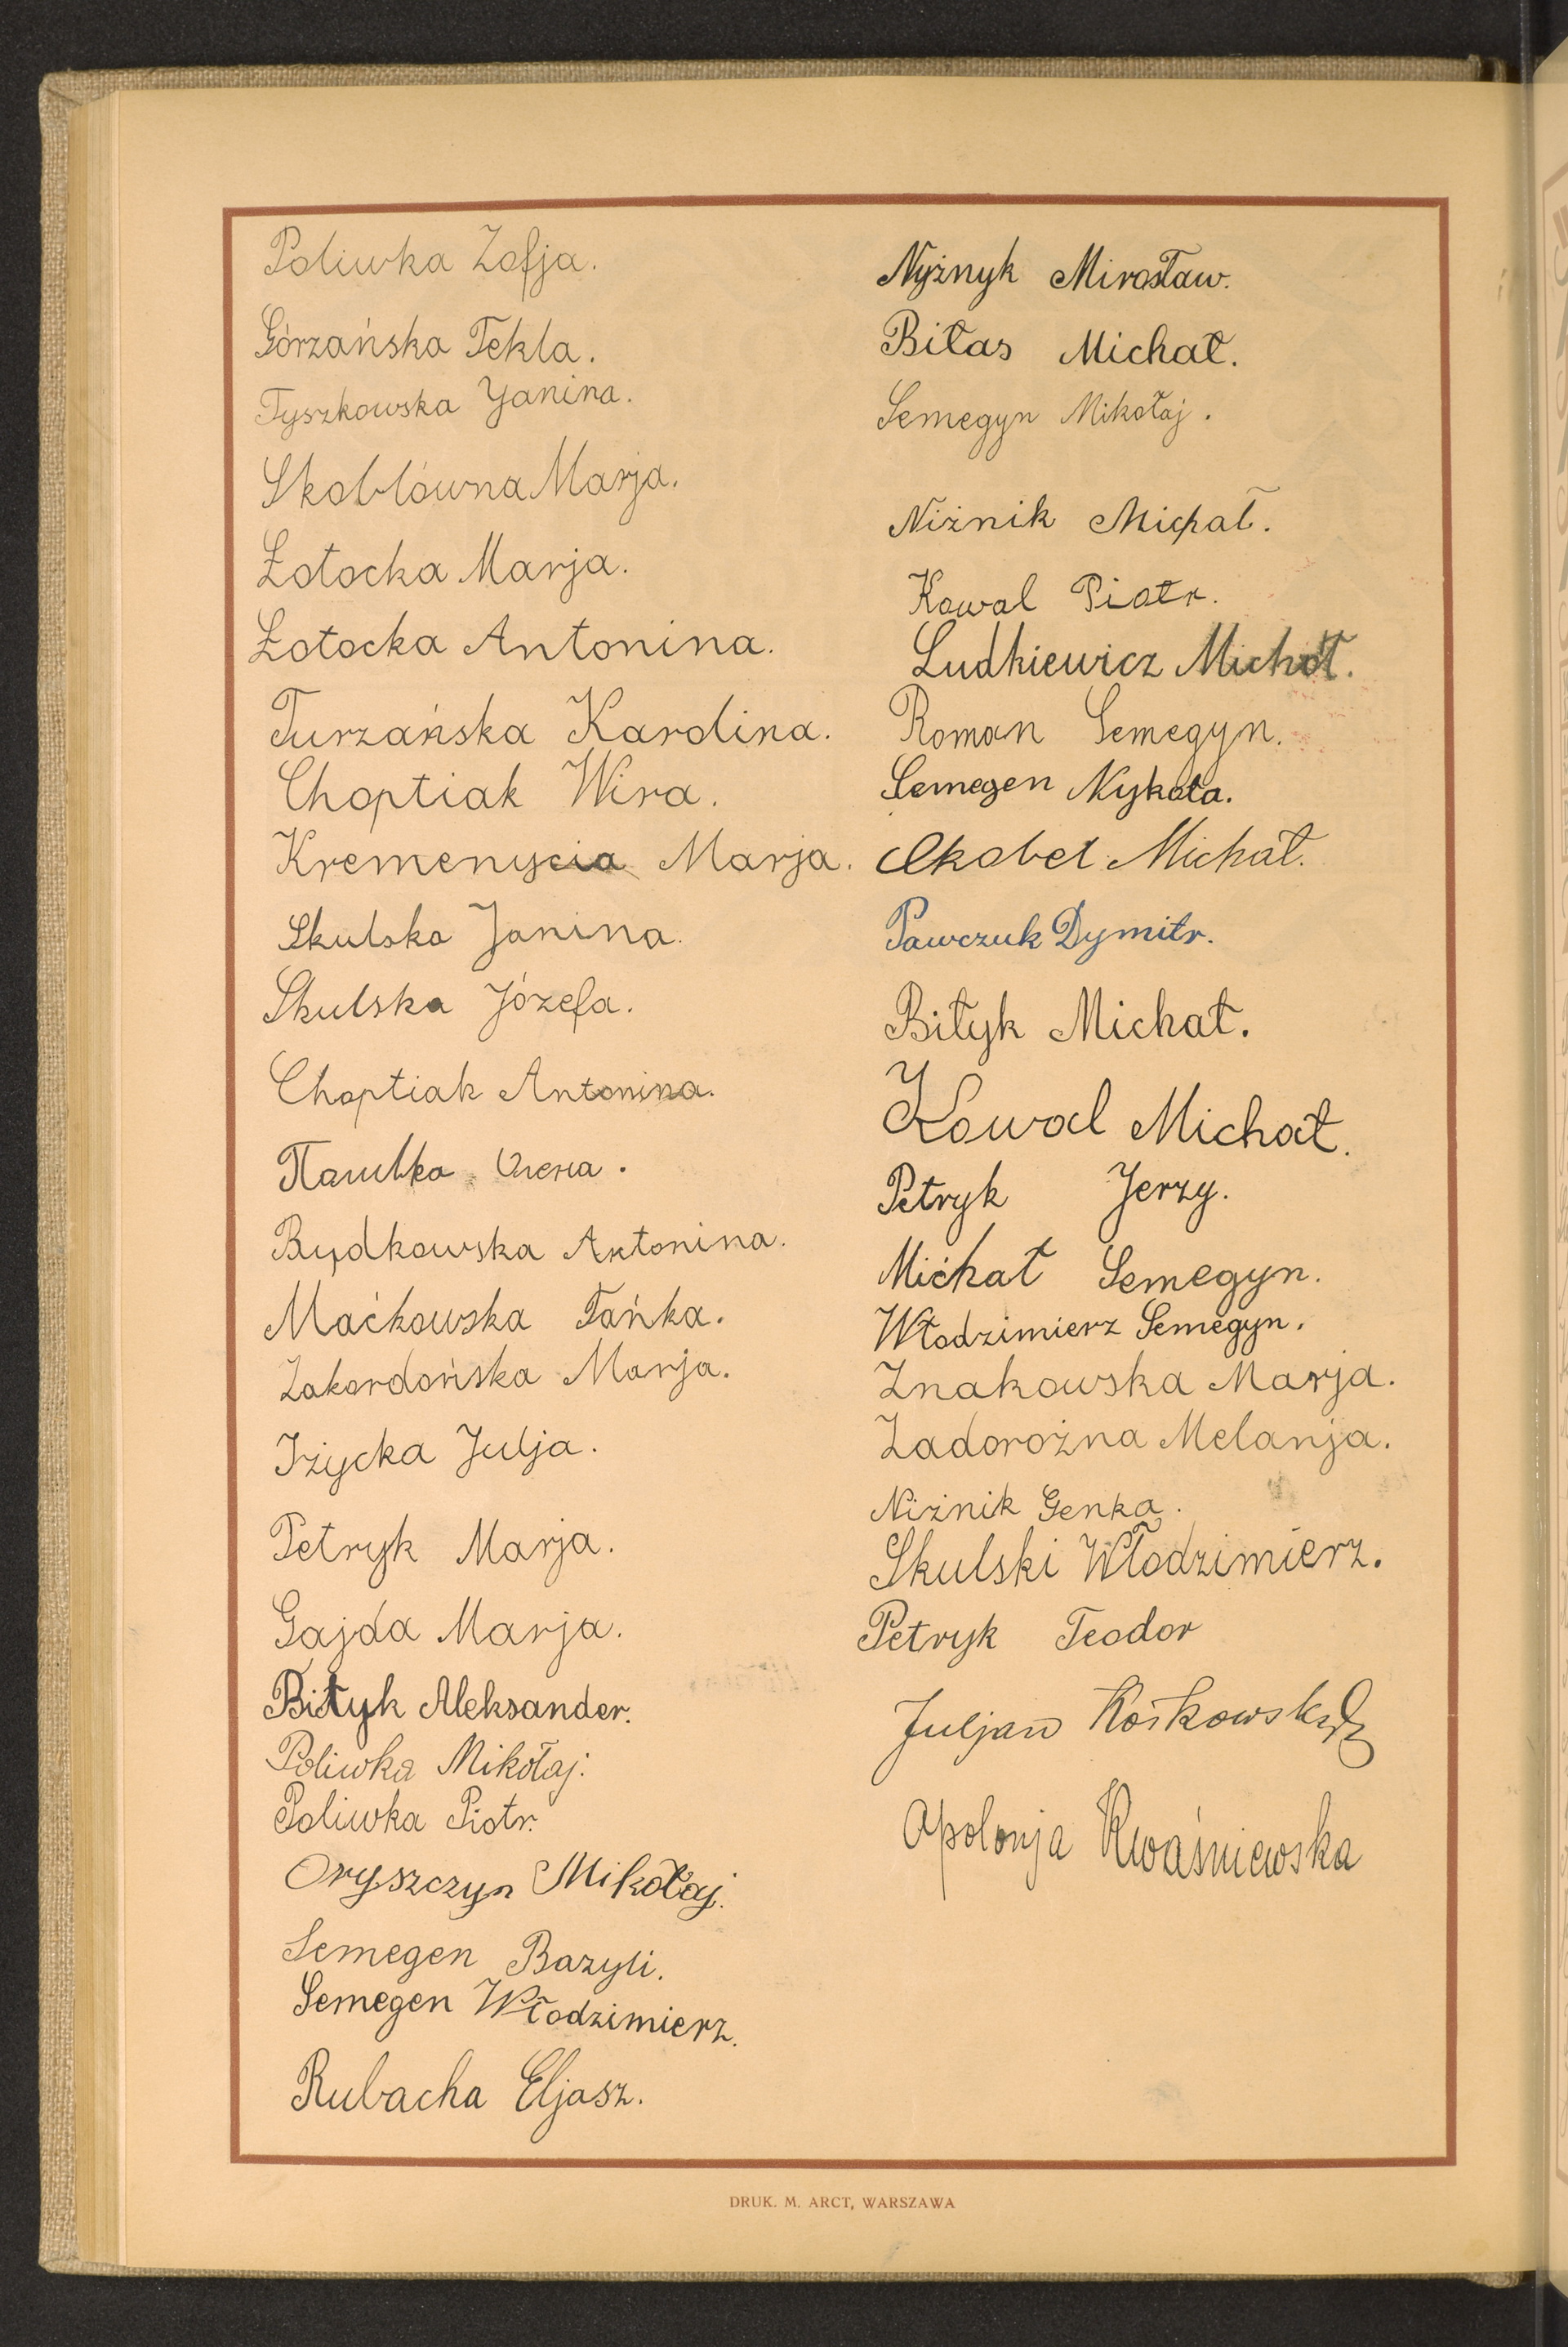 Poliwka Zofja.
Górzańska Tekla.
Tyszkowska Yanina.
Skoblówna Marja.
Łotocka Marja.
Łotocka Antonina.
Turzańska Karolina.
Choptiak Wira.
Kremenycia Marja.
Skulska Janina.
Skulska Józefa.
Choptiak Antonina.
Bydkowska Antonina.
Maćkowska Tańka.
Zakordońska Marja.
Iżycka Julja.
Petryk Marja.
Gajda Marja.
Biłyk Aleksander.
Poliwka Mikołaj.
Poliwka Piotr.
Oryszczyn Mikołaj.
Semegen Bazyli.
Semegen Włodzimierz.
Rubacha Eljasz.
Nyżnyk Mirosław.
Biłas Michał.
Semegyn Mikołaj.
Niżnik Michał.
Kowal Piotr.
Ludkiewicz Michał.
Roman Semegyn.
Semegen Nykoła.
Skobel Michał.
Pawczuk Dymitr.
Biłyk Michał.
Kowal Michał.
Petryk Jerzy.
Michał Semegyn.
Włodzimierz Semegyn.
Znakowska Marja.
Zadorożna Melanja.
Niżnik Genka.
Skulski Włodzimierz.
Petryk Teodor
Juljan
Apolonja Kwaśniewska
DRUK. M. ARCT, WARSZAWA